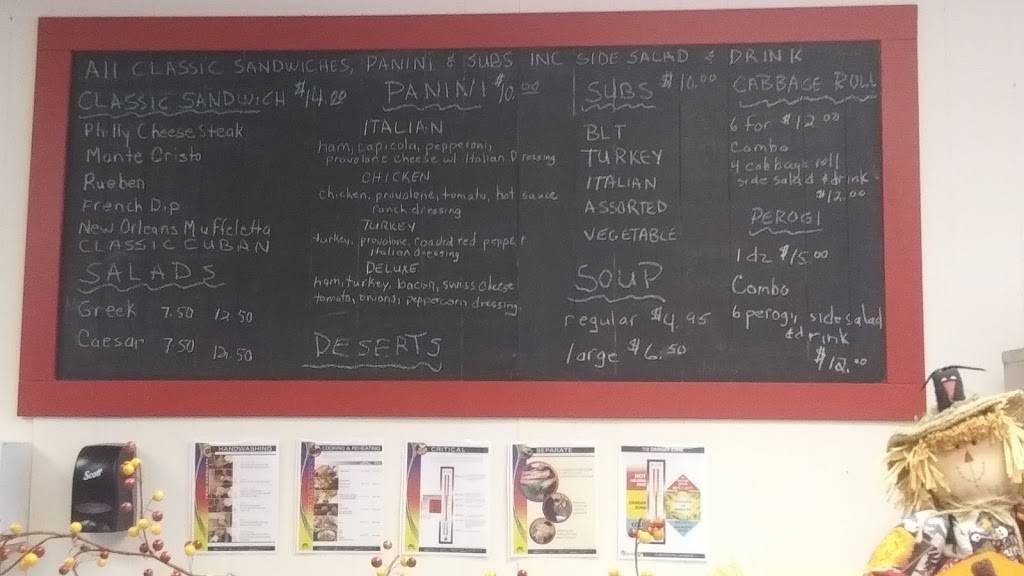 All CLASSIC SANDWICHES, PANINI & SUBS INC SIDE SALAD & DRINK
CLASSIC SANDWICH $14.00
Philly Cheese Steak
Monte Cristo
Rueben
French Dip
New Orleans Muffeletta
CLASSIC CUBAN
SALADS
Greek 7.50 12.50
Caesar 7.50 12.50
PANINI $10.00
ITALIAN
ham, capicola, pepperoni,
provolone cheese w/ Italian Dressing
CHICKEN
chicken, provolone, tomato, hot sauce
ranch dressing
TURKEY
turkey, provolone, roasted red pepper
italian dressing
DELUXE
ham, turkey, bacon, swiss cheese
tomato, onions, peppercorn dressing.
DESERTS
SUBS $10.00
BLT
TURKEY
ITALIAN
ASSORTED
VEGETABLE
SOUP
regular $4.95
large $6.50
CABBAGE ROLL
6 for $12.00
Combo
4 cabbage roll
side salad & drink
$12.00
PEROGI
1 dz $15.00
Combo
6 perogy, side salad
& drink
$12.00
Scott
HANDWASHING
COOKING & REHEATING
CRITICAL
SEPARATE
THE DANGER ZONE